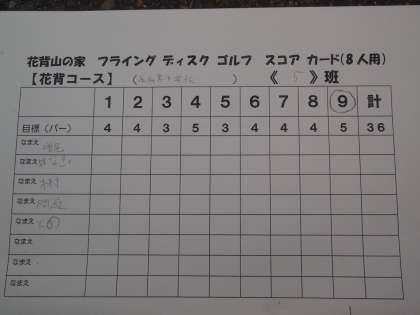 花背山の家 フライング ディスク ゴルフ スコア カード(8人用)
【花背コース】 ( ) 《 5 》班
1 2 3 4 5 6 7 8 9 計
目標 (パー) 4 4 3 5 3 4 4 4 5 36
なまえ
なまえ
なまえ 木村
なまえ
なまえ
なまえ
なまえ
なまえ